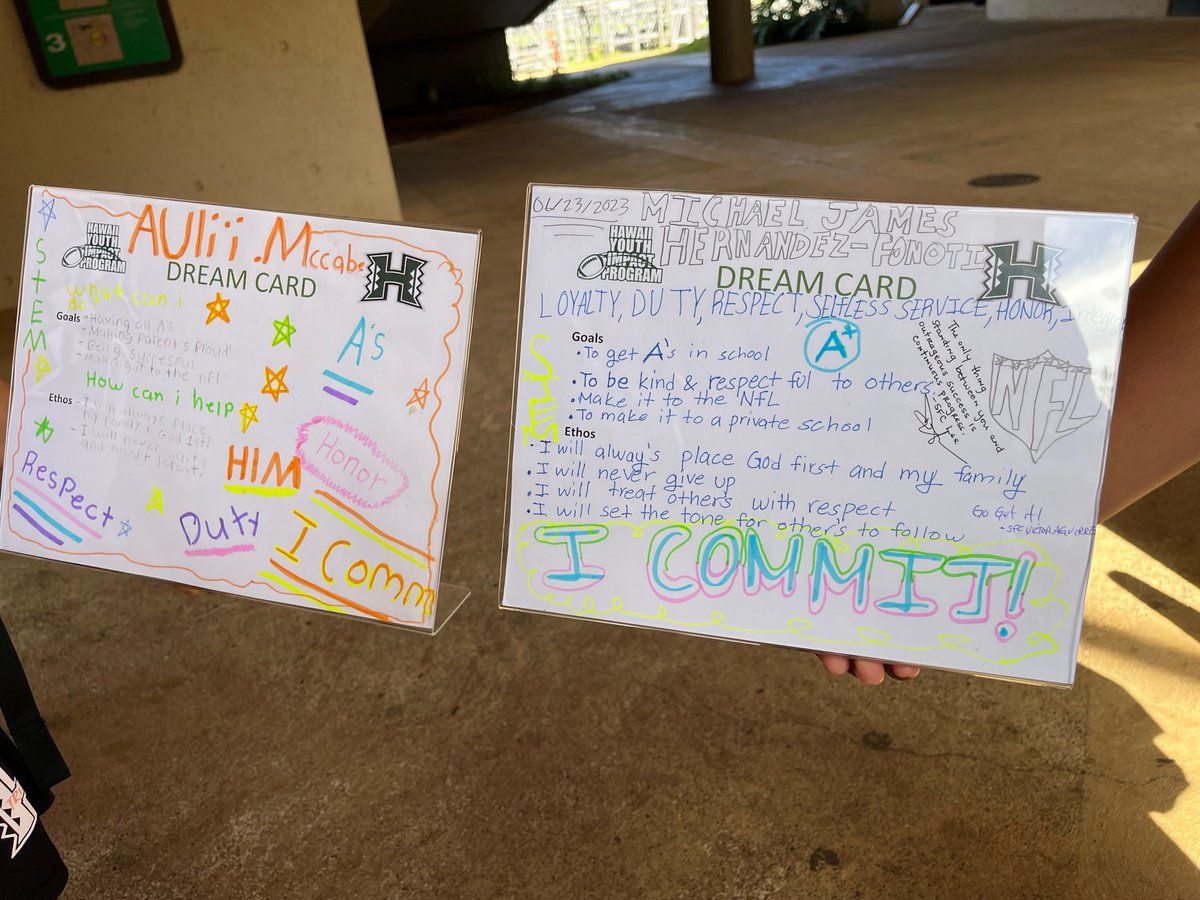 3
AULii .Mccabe
HAWAII
YOUTH
IMPACT
PROGRAM
H
DREAM CARD
STEM
What can i
do
Goals
- Having all A's
- Making Parent's Proud!
- Being successful
- Making it to the nfl
A's
How can i help
Ethos
- I will always place
my family & God 1st!
- I will never quit!
and accept defeat!
HIM
Honor
Respect
Duty
I Comm
06/23/2023
MICHAEL JAMES
HERNANDEZ-FONOTI
HAWAII
YOUTH
IMPACT
PROGRAM
H
DREAM CARD
LOYALTY, DUTY, RESPECT, SELFLESS SERVICE, HONOR, Integrity
Goals
• To get A's in school
A+
• To be kind & respectful to others
• Make it to the NFL
• To make it to a private school
The only thing
standing between you and
outrageous success is
continuous progress.
- SFC Lee
NFL
Ethos
• I will alway's place God first and my family
• I will never give up
• I will treat others with respect
• I will set the tone for other's to follow
Go Get it!
- SFC VICTOR AGUIRRE
I COMMIT!